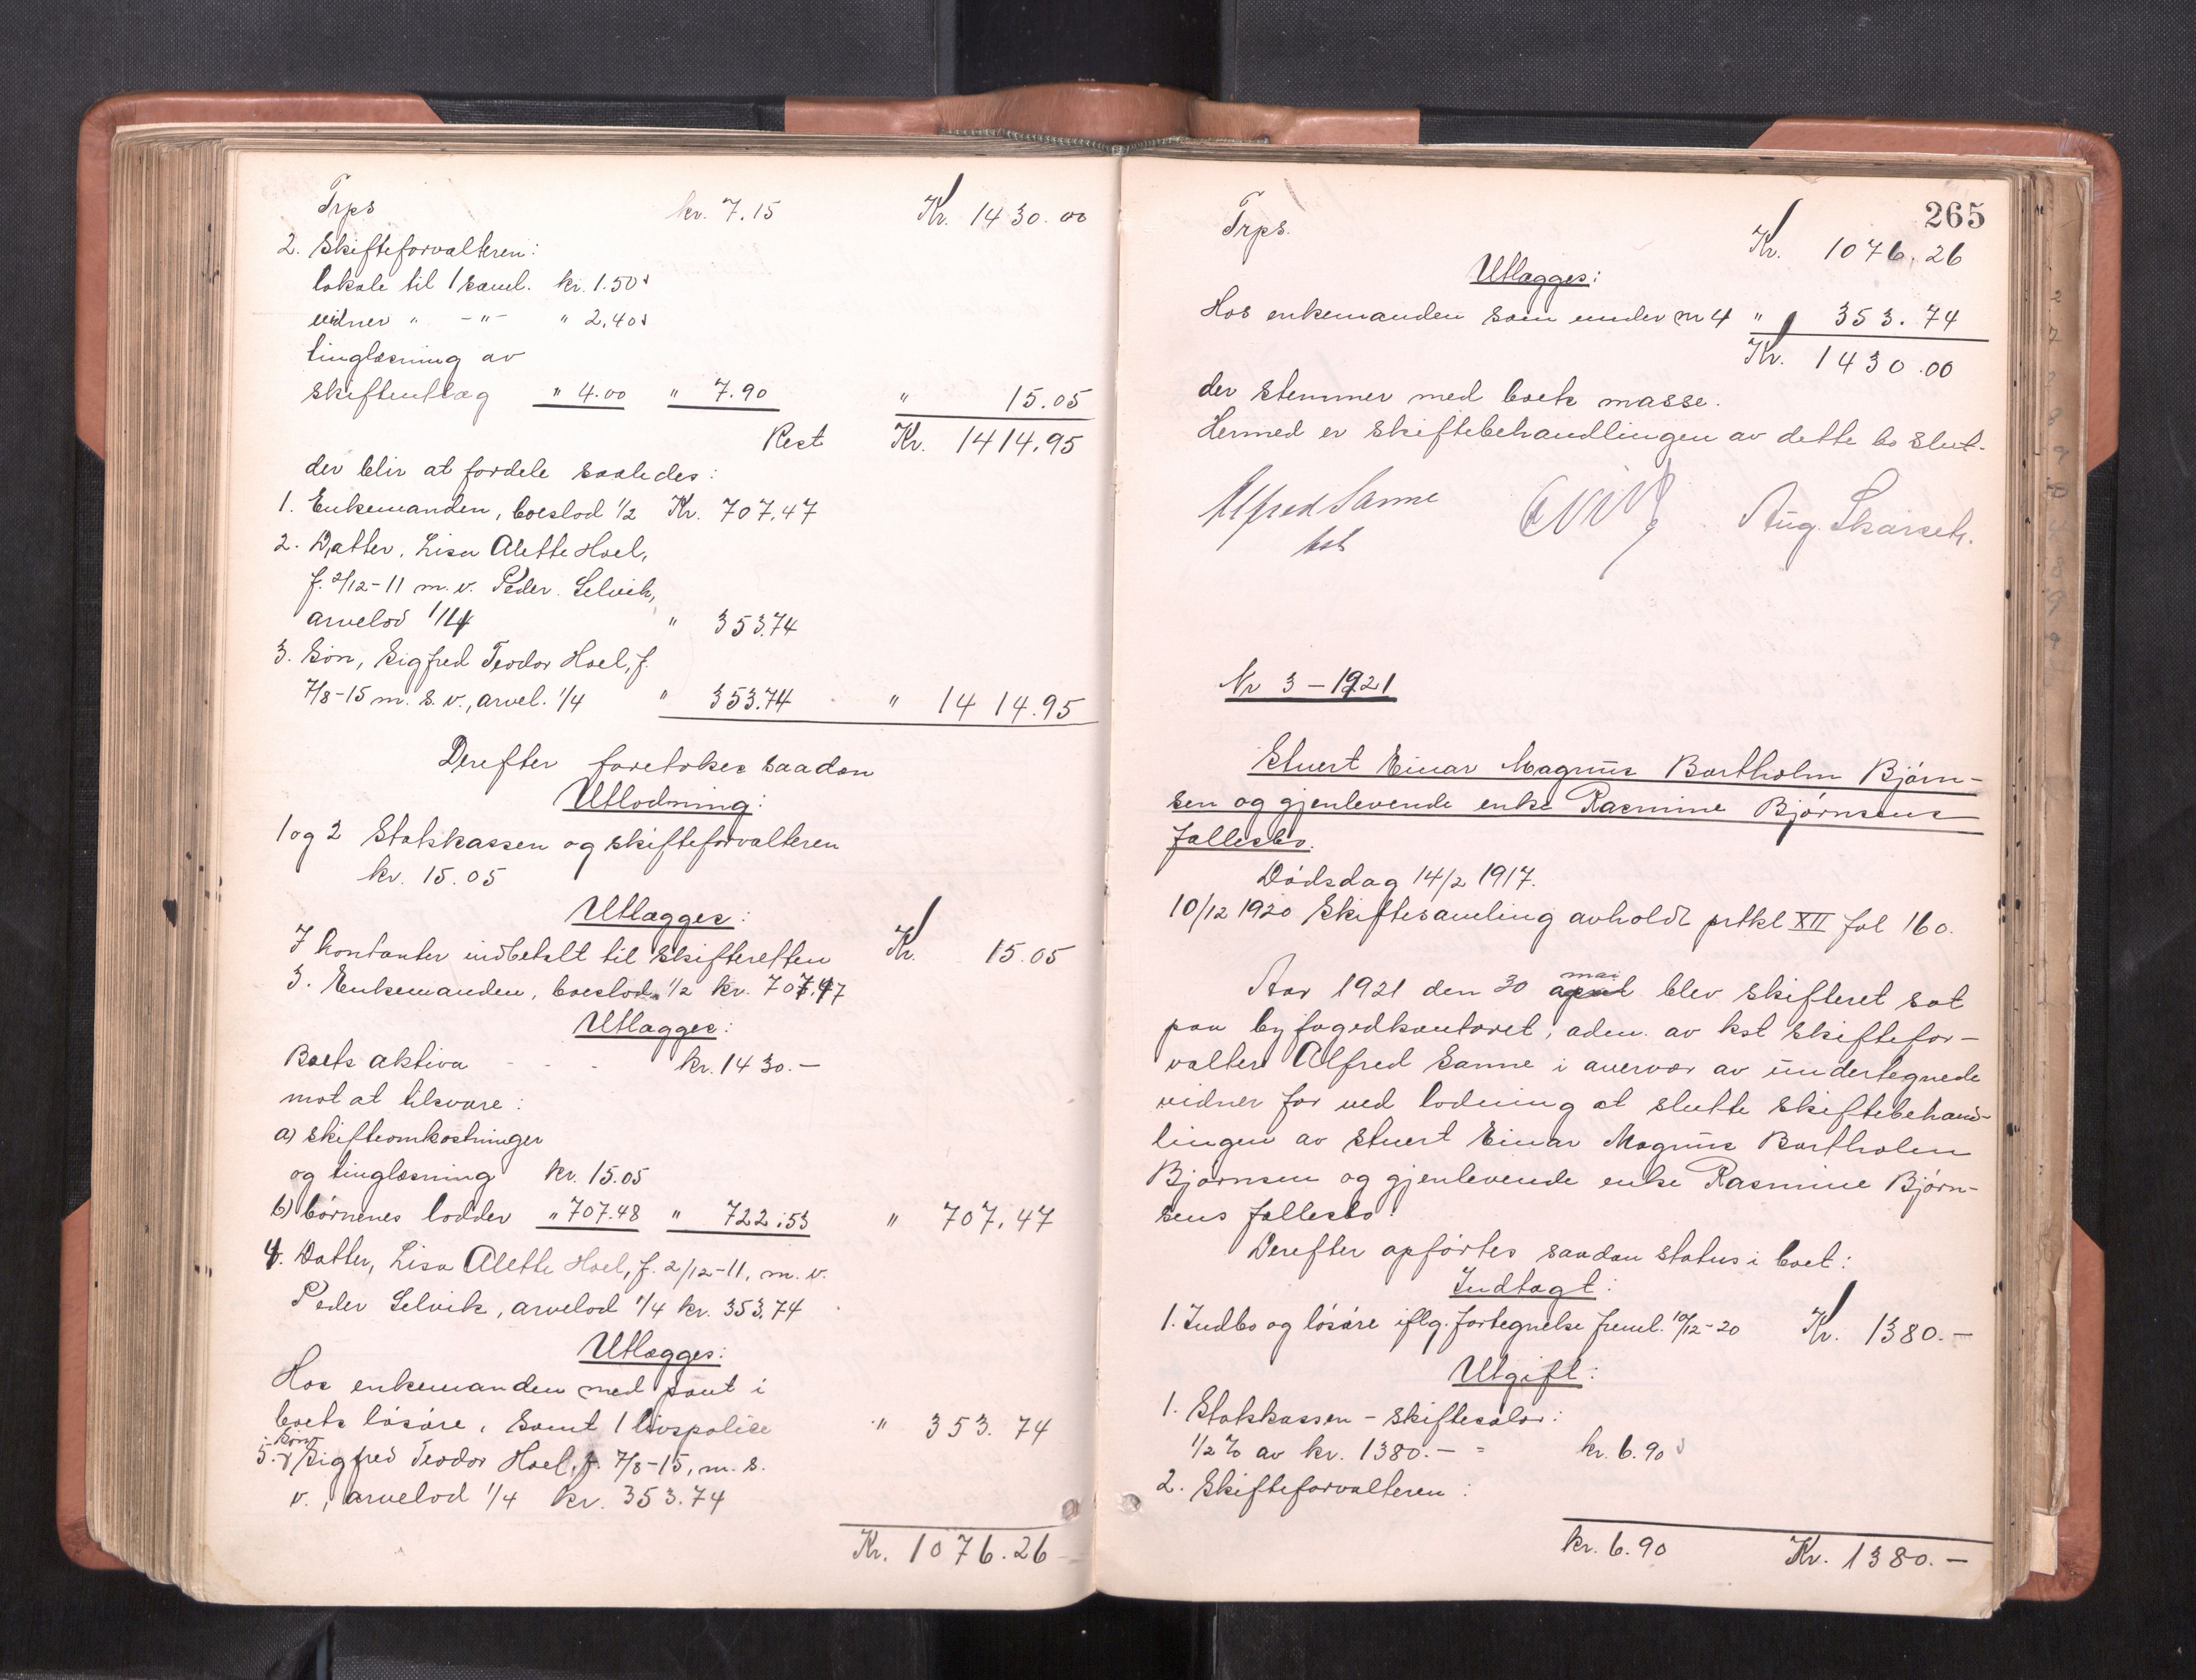 Trps kr. 7.15 Kr. 1430.00
2. Skifteforvalteren:
lokale til 1 saml. kr. 1.50
vidner " -"- " 2.40
tinglæsning av
skifteutlæg " 4.00 " 7.90 " 15.05
Rest Kr. 1414.95
der blir at fordele saaledes:
1. Enkemanden, boeslod 1/2 Kr. 707.47
2. Datter, Lisa Alette Hoel,
f. 2/12-11 m. v. Peder Selvik,
arvelod 1/4 " 353.74
3. Søn, Sigfred Teodor Hoel, f.
7/8-15 m. s. v., arvel. 1/4 " 353.74 " 1414.95
Derefter foretokes saadan
Utlodning:
1 og 2 Statskassen og skifteforvalteren
kr. 15.05
Utlægges:
I kontanter indbetalt til skifteretten Kr. 15.05
3. Enkemanden, boeslod 1/2 kr. 707.47
Utlægges:
Boets aktiva - - - kr. 1430.-
mot at tilsvare:
a) skifteomkostninger
og tinglæsning kr. 15.05
b) børnenes lodder " 707.48 " 722.53 " 707.47
4. Datter, Lisa Alette Hoel, f. 2/12-11, m. v.
Peder Selvik, arvelod 1/4 kr. 353.74
Utlægges:
Hos enkemanden med pant i
boets løsøre, samt 1 livspolice " 353.74
5. Søn Sigfred Teodor Hoel, f. 7/8-15, m. s.
v., arvelod 1/4 kr. 353.74
Kr. 1076.26
265
Trps. Kr. 1076.26
Utlægges:
Hos enkemanden som under nr 4 " 353.74
Kr. 1430.00
der stemmer med boets masse.
Hermed er skiftebehandlingen av dette bo slut.
Alfred Sanne Aug. Skarseth.
kst
Nr 3 - 1921
Stuert Einar Magnus Bartholm Bjørn-
sen og gjenlevende enke Rasmine Bjørnsens
fællesbo.
Dødsdag 14/2 1917.
10/12 1920 Skiftesamling avholdt prtkl XII fol 160.
mai
Aar 1921 den 30 april blev skifteret sat
paa byfogedkontoret, adm. av kst skiftefor-
valter Alfred Sanne i overvær av undertegnede
vidner for ved lodning at slutte skiftebehand-
lingen av stuert Einar Magnus Bartholm
Bjørnsen og gjenlevende enke Rasmine Bjørn-
sens fællesbo.
Derefter opførtes saadan status i boet:
Indtægt:
1. Indbo og løsøre iflg. fortegnelse freml. 10/12-20 Kr. 1380.-
Utgift:
1. Statskassen - skiftesalær:
1/2 % av kr. 1380.- = kr. 6.90
2. Skifteforvalteren:
kr. 6.90 Kr. 1380.-